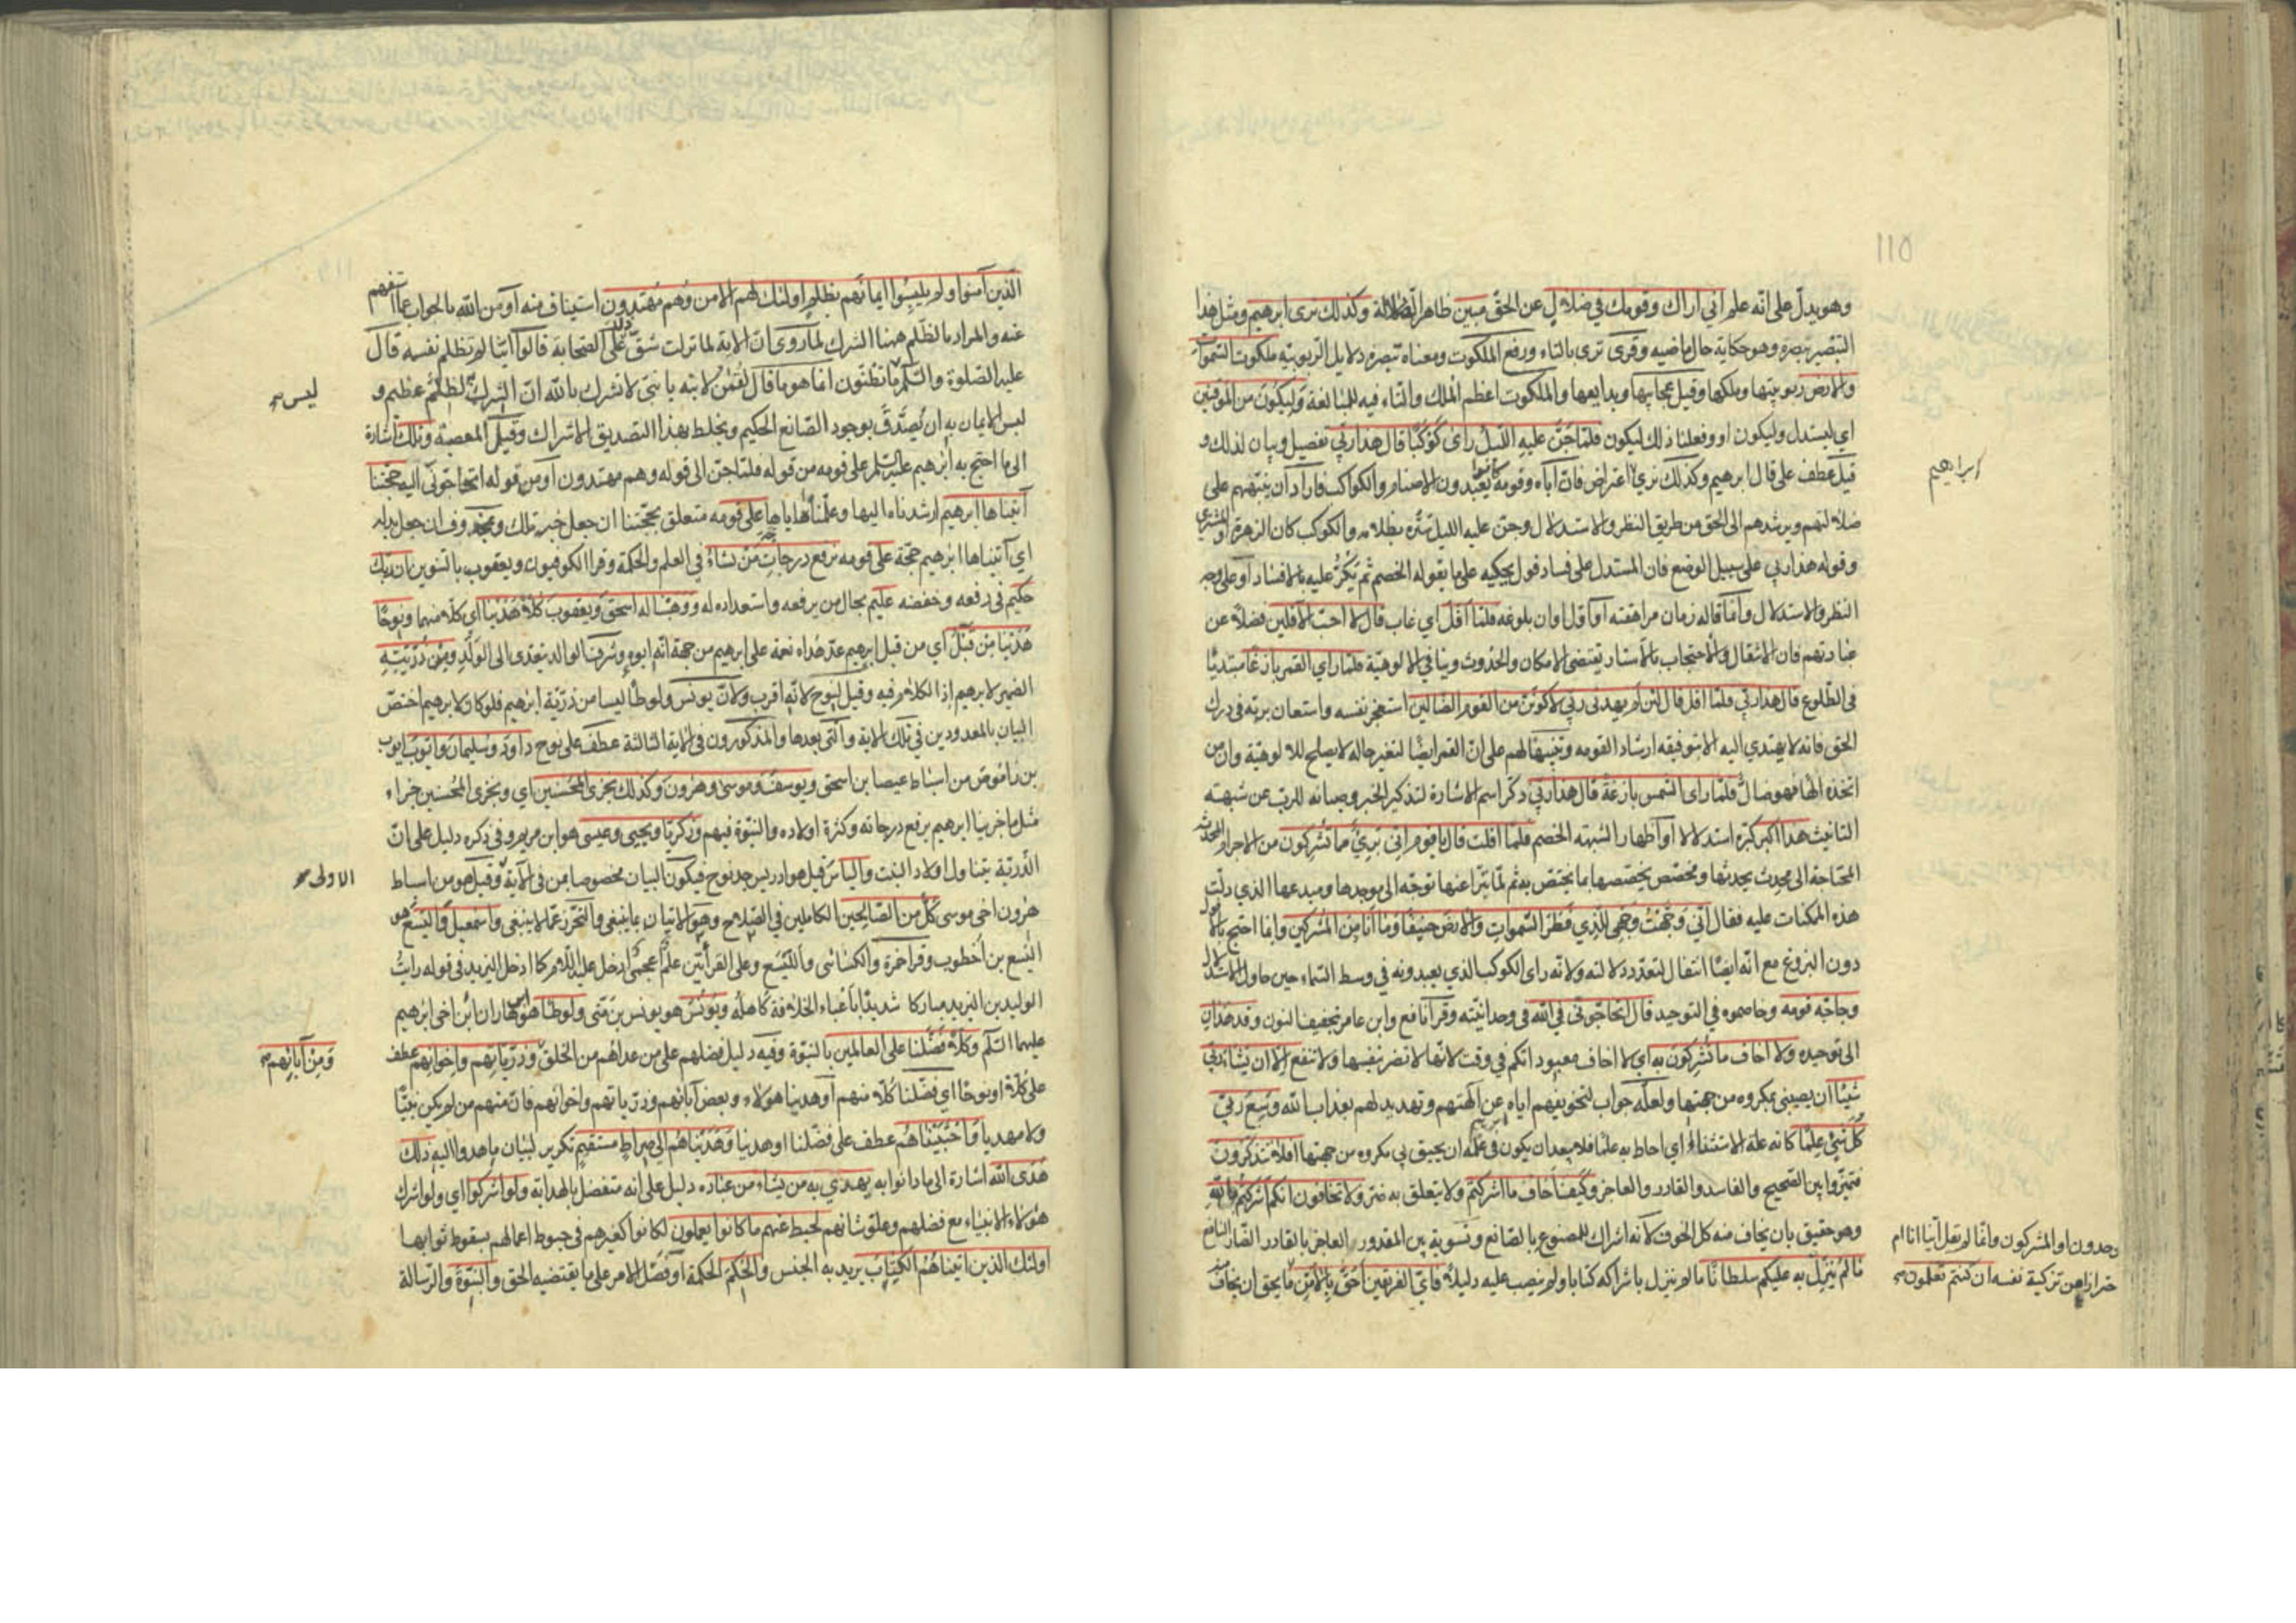 ١١٥
وهو يدل على انه علم اني اراك وقومك في ضلال عن الحق مبين ظاهر الضلالة وكذلك نرى ابرهيم ومثل هذا
التبصير نبصره وهو حكاية حال ماضيه وقرئ ترى بالتاء ورفع الملكوت ومعناه تبصره دلايل الربوبيه ملكوت السموات
والارض ربوبيتها وملكها وقيل عجايبها وبدايعها والملكوت اعظم الملك والتاء فيه للمبالغة وليكون من الموقنين
اي ليستدل وليكون او وفعلنا ذلك ليكون فلما جن عليه الليل راى كوكبا قال هذا ربي تفصيل وبيان لذلك و
قيل عطف على قال ابرهيم وكذلك نري اعتراض فان اباه وقومه كانوا يعبدون الاصنام والكواكب فاراد ان ينبههم على
ابراهيم
ضلالتهم ويرشدهم الى الحق من طريق النظر والاستدلال وجن عليه الليل ستره بظلامه والكوكب كان الزهرة او المشتري
وقوله هذا ربي على سبيل الوضع فان المستدل على فساد قول يحكيه على ما يقوله الخصم ثم يكر عليه بالافساد او على وجه
النظر والاستدلال وانما قاله زمان مراهقته او اول اوان بلوغه فلما افل اي غاب قال لا احب الافلين فضلا عن
عبادتهم فان الانتقال والاحتجاب بالاستار يقتضي الامكان والحدوث وينافي الالوهية فلما راي القمر بازغا مبتديا
في الطلوع قال هذا ربي فلما افل قال لئن لم يهدني ربي لاكونن من القوم الضالين استعجز نفسه واستعان بربه في درك
الحق فانه لا يهتدي اليه الا بتوفيقه ارشادا لقومه وتنبيها لهم على ان القمر ايضا لتغير حاله لا يصلح للالوهية وان من
اتخذه الها فهو ضال فلما راى الشمس بازغة قال هذا ربي ذكر اسم الاشارة لتذكير الخبر وصيانة للرب عن شبهة
التانيث هذا اكبر كبره استدلالا او اظهارا لشبهته الخصم فلما افلت قال يا قوم اني بريء مما تشركون من الاجرام المحدثة
المحتاجة الى محدث يحدثها ومخصص يخصصها بما يختص به ثم لما تبرا عنها توجه الى موجدها ومبدعها الذي دلت
هذه الممكنات عليه فقال اني وجهت وجهي للذي فطر السموات والارض حنيفا وما انا من المشركين وانما احتج بالافول
دون البزوغ مع انه ايضا انتقال لتعدد دلالته ولانه راى الكوكب الذي يعبدونه في وسط السماء حين حاول الاستدلال
وحاجه قومه وخاصموه في التوحيد قال اتحاجوني في الله في وحدانيته وقرا نافع وابن عامر بتخفيف النون وقد هدان
الى توحيده ولا اخاف ما تشركون به اي لا اخاف معبوداتكم في وقت لانها لا تضر بنفسها ولا تنفع الا ان يشاء ربي
شيئا ان يصيبني بمكروه من جهتها ولعله جواب لتخويفهم اياه عن الهتهم وتهديد لهم بعذاب الله وسع ربي
كل شيء علما كانه علة الاستثناء اي احاط به علما فلا يبعد ان يكون في علمه ان يحيق بي مكروه من جهتها افلا تتذكرون
فتميزوا بين الصحيح والفاسد والقادر والعاجز وكيف اخاف ما اشركتم ولا يتعلق به ضر ولا تخافون انكم اشركتم بالله
وهو حقيق بان يخاف منه كل الخوف لانه اشراك للمصنوع بالصانع وتسوية بين المقدور العاجز بالقادر الضار النافع
ما لم ينزل به عليكم سلطانا ما لم ينزل باشراكه كتابا ولم ينصب عليه دليلا فاي الفريقين احق بالامن ما يحق ان يخاف
وحدون او المشركون وانما لم يقل ايّنا انا ام
حترازا من تزكية نفسه ان كنتم تعلمون
الذين آمنوا ولم يلبسوا ايمانهم بظلم اولئك لهم الامن وهم مهتدون استيناف منه او من الله بالجواب عما استفهم
عنه والمراد بالظلم ههنا الشرك لما روي ان الاية لما نزلت شق ذلك على الصحابة قالوا اينا لم يظلم نفسه قال
عليه الصلوة والسلم ما تظنون انما هو ما قال لقمن لابنه يا بني لا تشرك بالله ان الشرك لظلم عظيم و
ليس
لبس الايمان به ان تصدق بوجود الصانع الحكيم ويخلط بهذا التصديق الاشراك وقيل المعصية وتلك اشارة
الى ما احتج به ابرهيم عليه السلم على قومه من قوله فلما جن الى قوله وهم مهتدون او من قوله اتحاجوني اليه حجتنا
آتيناها ابرهيم ارشدناه اليها وعلمناه اياها على قومه متعلق بحجتنا ان جعل خبر تلك وبمحذوف ان جعل بدله
اي آتيناها ابرهيم حجة على قومه نرفع درجات من نشاء في العلم والحكمة وقرا الكوفيون ويعقوب بالتنوين ان ربك
حكيم في رفعه وخفضه عليم بحال من يرفعه واستعداده له ووهبنا له اسحق ويعقوب كلا هدينا اي كلا منهما ونوحا
هدينا من قبل اي من قبل ابرهيم عد هداه نعمة على ابرهيم من حيث انه ابوه وشرف الوالد يتعدى الى الولد ومن ذريته
الضمير لابرهيم اذ الكلام فيه وقيل لنوح لانه اقرب ولان يونس ولوطا ليسا من ذرية ابرهيم فلو كان لابرهيم اختص
البيان بالمعدودين في تلك الاية والتي بعدها والمذكورون في الاية الثالثة عطف على نوح داود وسليمان وايوب ايوب
بن اموص من اسباط عيصا بن اسحق ويوسف وموسى وهرون وكذلك نجزي المحسنين اي ونجزي المحسنين جزاء
مثل ما جزينا ابرهيم برفع درجاته وكثرة اولاده والنبوة فيهم وزكريا ويحيى وعيسى هو ابن مريم وفي ذكره دليل على ان
الذرية يتناول اولاد البنت والياس قيل هو ادريس جد نوح فيكون البيان مخصوصا بمن في الاية وقيل هو من اسباط
الاولى
هرون اخي موسى كل من الصالحين الكاملين في الصلاح وهو الاتيان بما ينبغي والتحرز عما لا ينبغي واسمعيل واليسع هو
اليسع بن اخطوب وقرا حمزة والكسائى والليسع وعلى القرأتين علم اعجمي ادخل عليه اللام كما ادخل اليزيد في قوله رايت
الوليد بن اليزيد مباركا شديدا باعباء الخلافة كاهله ويونس هو يونس بن متى ولوطا هو ابن هاران ابن اخي ابرهيم
عليهما السلم وكلا فضلنا على العالمين بالنبوة وفيه دليل فضلهم على من عداهم من الخلق وذرياتهم واخوانهم عطف
ومن آبائهم
على كلا او نوحا اي فضلنا كلا منهم او هدينا هولاء وبعض آبائهم وذرياتهم واخوانهم فان منهم من لم يكن نبيا
ولا مهديا واجتبيناهم عطف على فضلنا او هدينا وهديناهم الى صراط مستقيم تكرير لبيان ما هدوا اليه ذلك
هدى الله اشارة الى ما دانوا به يهدي به من يشاء من عباده دليل على انه متفضل بالهداية ولو اشركوا اي ولو اشرك
هولاء الانبياء مع فضلهم وعلو شانهم لحبط عنهم ما كانوا يعملون لكانوا كغيرهم في حبوط اعمالهم بسقوط ثوابها
اولئك الذين اتيناهم الكتاب يريد به الجنس والحكم الحكمة او فصل الامر على ما يقتضيه الحق والنبوة والرسالة